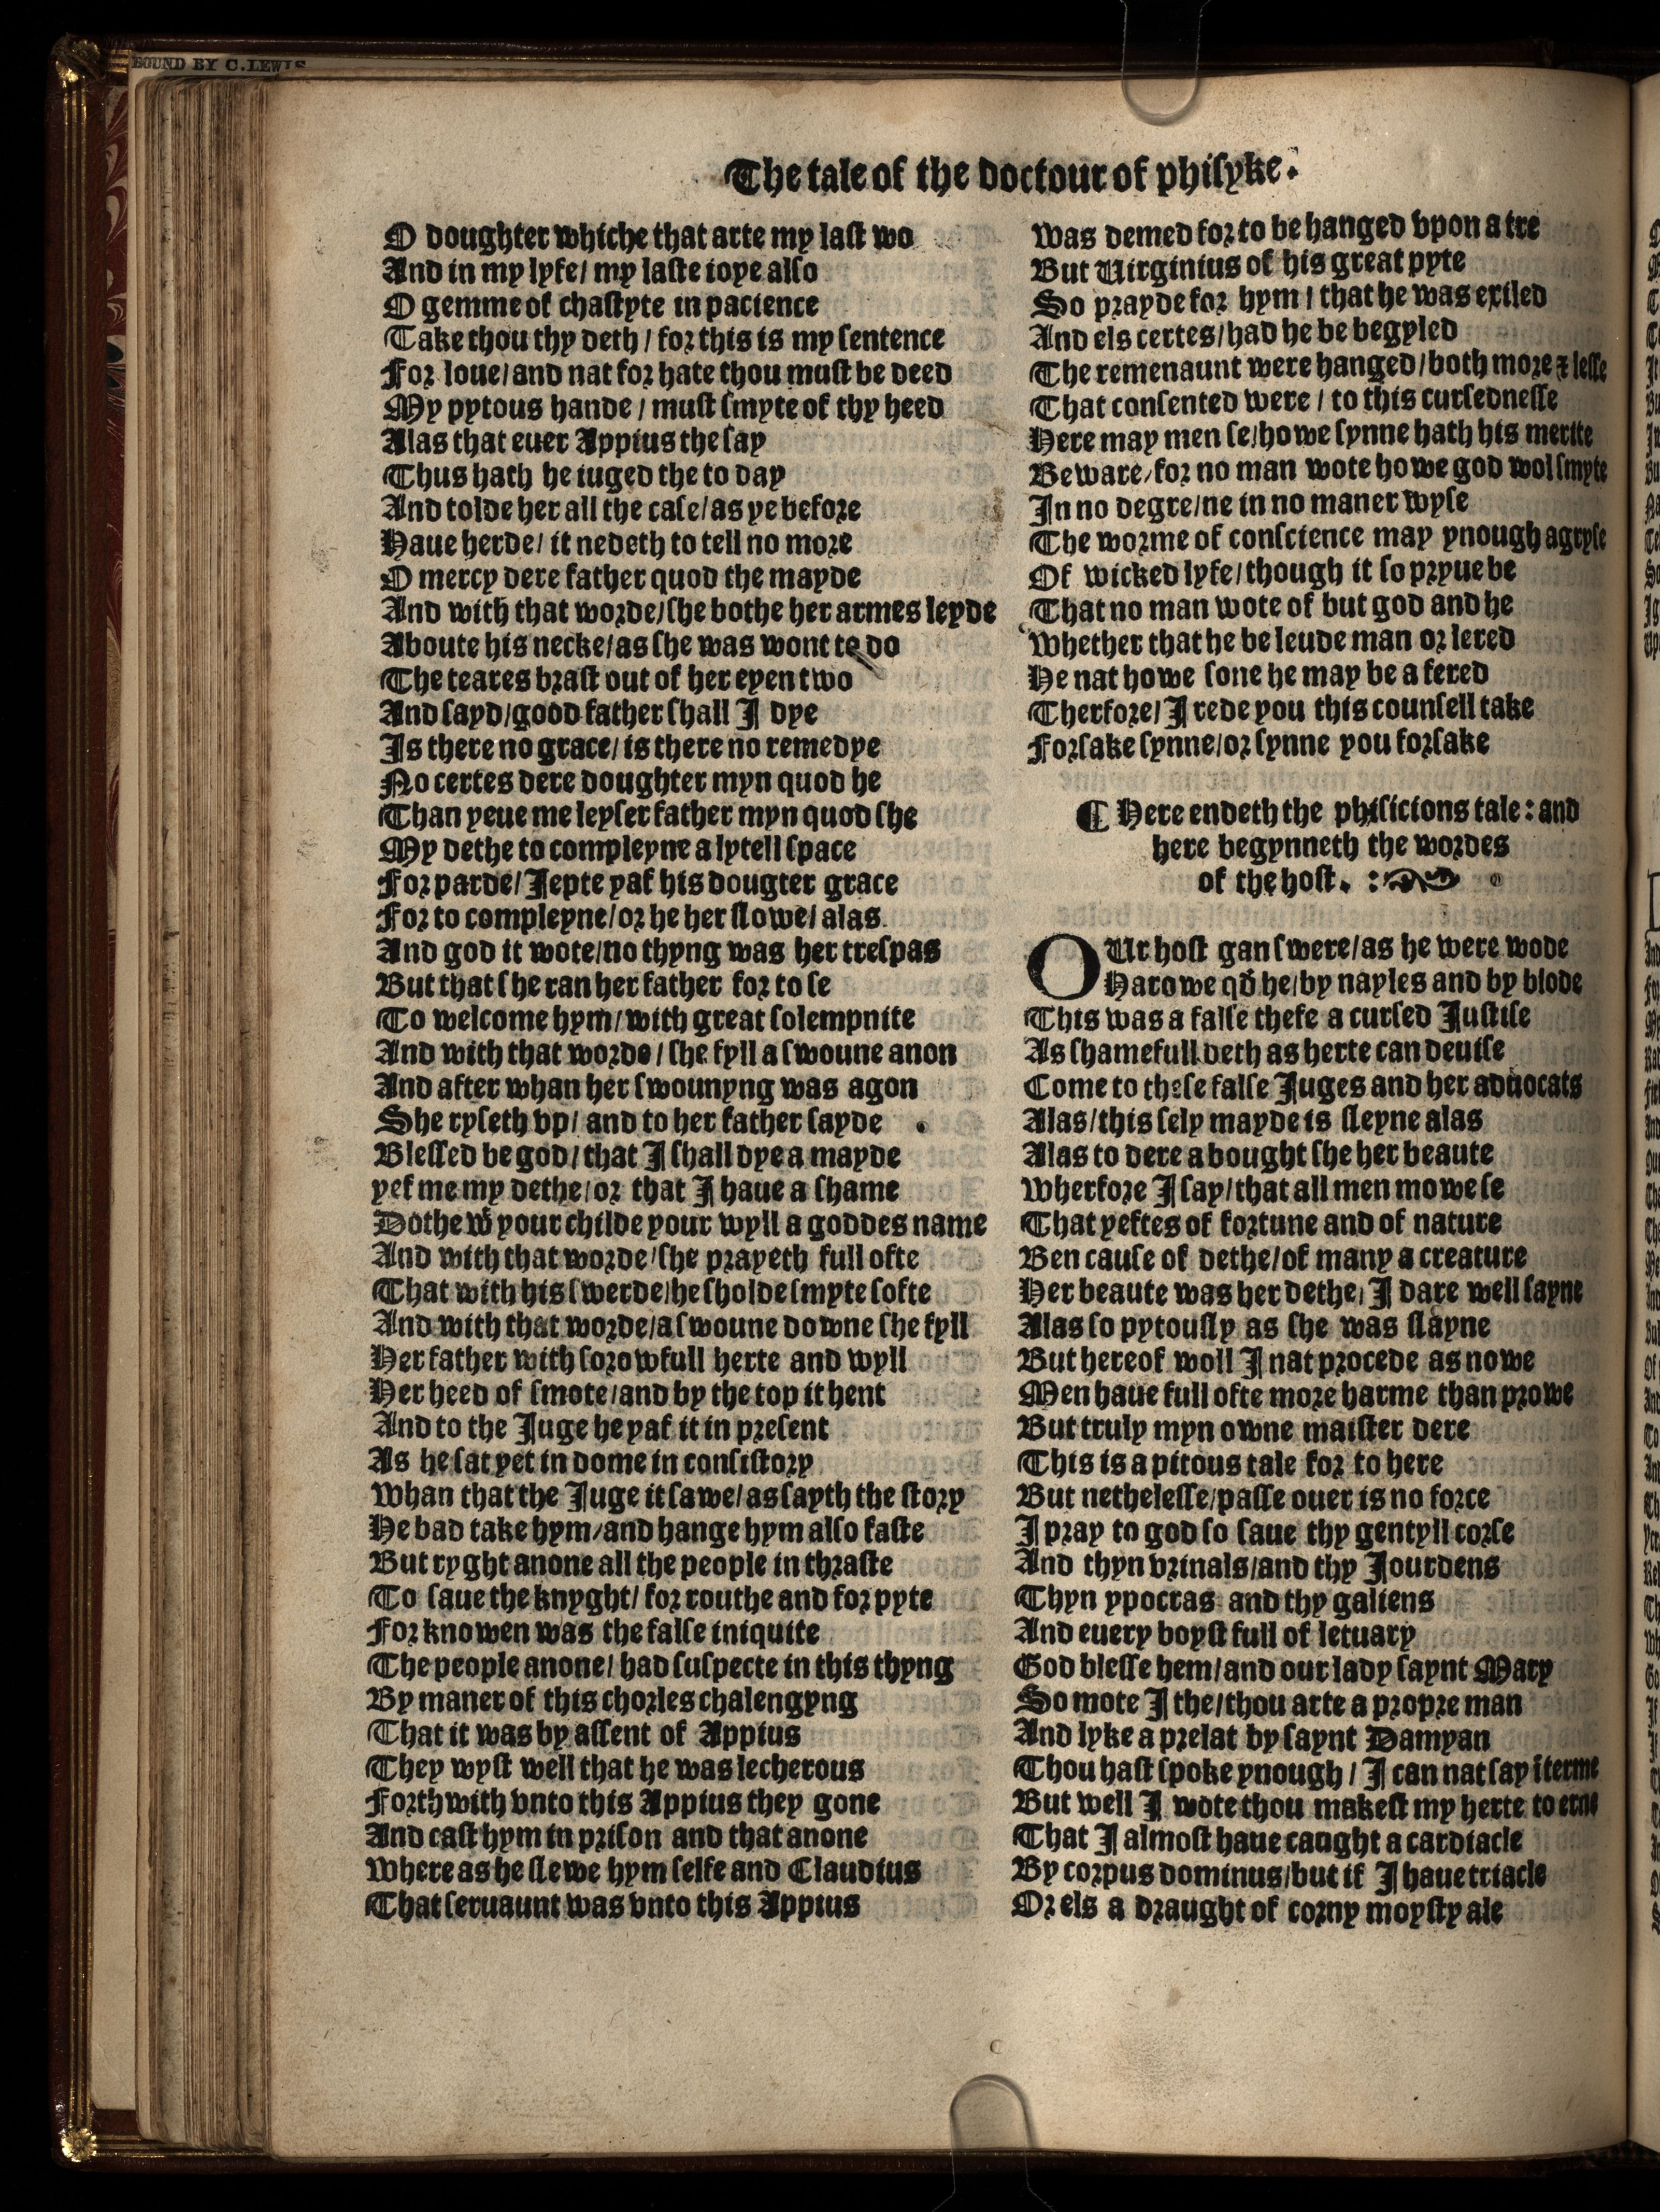 BOUND BY C.LEWIS
The tale of the doctour of phisyke.
O doughter whiche that arte my last wo
And in my lyfe/ my laste ioye also
O gemme of chastyte in pacience
Take thou thy deth / for this is my sentence
For loue/ and nat for hate thou must be deed
My pytous hande / must smyte of thy heed
Alas that euer Appius the say
Thus hath he iuged the to day
And tolde her all the case/ as ye before
Haue herde/ it nedeth to tell no more
O mercy dere father quod the mayde
And with that worde/she bothe her armes leyde
Aboute his necke/as she was wont to do
The teares brast out of her eyen two
And sayd/good father shall I dye
Is there no grace/ is there no remedye
No certes dere doughter myn quod he
Than yeue me leyser father myn quod she
My dethe to compleyne a lytell space
For parde/ Iepte yaf his dougter grace
For to compleyne/or he her slowe/ alas
And god it wote/no thyng was her trespas
But that she ran her father for to se
To welcome hym/with great solempnite
And with that worde/ she fyll a swoune anon
And after whan her swounyng was agon
She ryseth vp/ and to her father sayde
Blessed be god/ that I shall dye a mayde
yef me my dethe/or that I haue a shame
Dothe wͭ your childe your wyll a goddes name
And with that worde/she prayeth full ofte
That with his swerde/he sholde smyte softe
And with that worde/a swoune downe she fyll
Her father with sorowfull herte and wyll
Her heed of smote/and by the top it hent
And to the Iuge he yaf it in present
As he sat yet in dome in consistory
Whan that the Iuge it sawe/ as sayth the story
He bad take hym/and hange hym also faste
But ryght anone all the people in thraste
To saue the knyght/ for routhe and for pyte
For knowen was the false iniquite
The people anone/ had suspecte in this thyng
By maner of this chorles chalengyng
That it was by assent of Appius
They wyst well that he was lecherous
Forthwith vnto this Appius they gone
And cast hym in prison and that anone
Where as he slewe hym selfe and Claudius
That seruaunt was vnto this Appius
Was demed for to be hanged vpon a tre
But Uirginius of his great pyte
So prayde for hym / that he was exiled
And els certes/had he be begyled
The remenaunt were hanged/both more ⁊ lesse
That consented were / to this cursednesse
Here may men se/howe synne hath his merite
Beware/for no man wote howe god wol smyte
In no degre/ne in no maner wyse
The worme of conscience may ynough agryse
Of wicked lyfe/though it so pryue be
That no man wote of but god and he
Whether that he be leude man or lered
He nat howe sone he may be a fered
Therfore/ I rede you this counsell take
Forsake synne/or synne you forsake
¶ Here endeth the phisicions tale: and
here begynneth the wordes
of the host. :
OUr host gan swere/as he were wode
Harowe qd̄ he/by nayles and by blode
This was a false thefe a cursed Iustise
As shamefull deth as herte can deuise
Come to these false Iuges and her aduocats
Alas/this sely mayde is sleyne alas
Alas to dere a bought she her beaute
Wherfore I say/that all men mowe se
That yeftes of fortune and of nature
Ben cause of dethe/of many a creature
Her beaute was her dethe/ I dare well sayne
Alas so pytously as she was slayne
But hereof woll I nat procede as nowe
Men haue full ofte more harme than prowe
But truly myn owne maister dere
This is a pitous tale for to here
But nethelesse/passe ouer is no force
I pray to god so saue thy gentyll corse
And thyn vrinals/and thy Iourdens
Thyn ypocras and thy galiens
And euery boyst full of letuary
God blesse hem/and our lady saynt Mary
So mote I the/thou arte a propre man
And lyke a prelat by saynt Damyan
Thou hast spoke ynough / I can nat say ī terme
But well I wote thou makest my herte to erne
That I almost haue caught a cardiacle
By corpus dominus/but if I haue triacle
Or els a draught of corny moysty ale